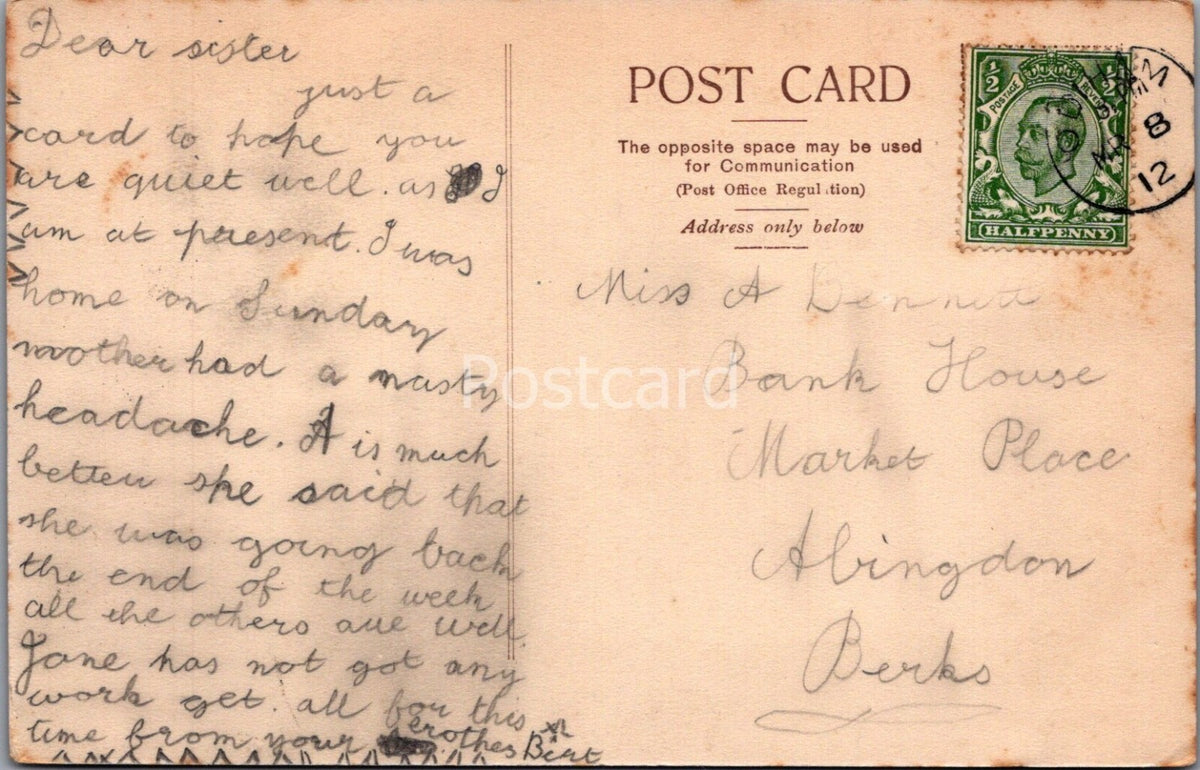 Dear sister
just a
card to hope you
are quiet well. as I
am at present. I was
home on Sunday
mother had a nasty
headache. A is much
better she said that
she was going back
the end of the week
all the others are well.
Jane has not got any
work get. all for this
time from your brother Bert
POST CARD
The opposite space may be used
for Communication
(Post Office Regul tion)
Address only below
½ ½
POSTAGE
HALFPENNY
PM
8
12
Miss A Bennett
Bank House
Market Place
Abingdon
Berks
Postcard